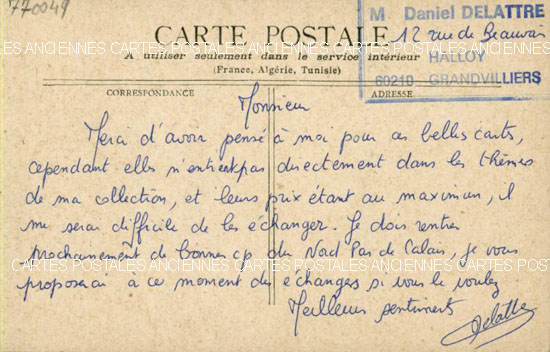 770049
CARTE POSTALE
M. Daniel DELATTRE
12 rue de Beauvais
HALLOY
60210 GRANDVILLIERS
A utiliser seulement dans le service intérieur
(France, Algérie, Tunisie)
CARTES POSTALES ANCIENNES CARTES POSTALES ANCIENNES CARTES POSTALES ANCIENNES
CORRESPONDANCE
ADRESSE
Monsieur
Merci d'avoir pensé à moi pour ces belles carts,
cependant elles n'entrent pas directement dans les thèmes
de ma collection, et leurs prix étant au maximum, il
me serai difficile de les échanger. Je dois rentrer
prochainement de bonnes cp du Nord Pas de Calais, je vous
proposerai à ce moment des echanges si vous le voulez
CARTES POSTALES ANCIENNES CARTES POSTALES ANCIENNES CARTES POSTALES ANCIENNES
Meilleurs sentiments
Delattre